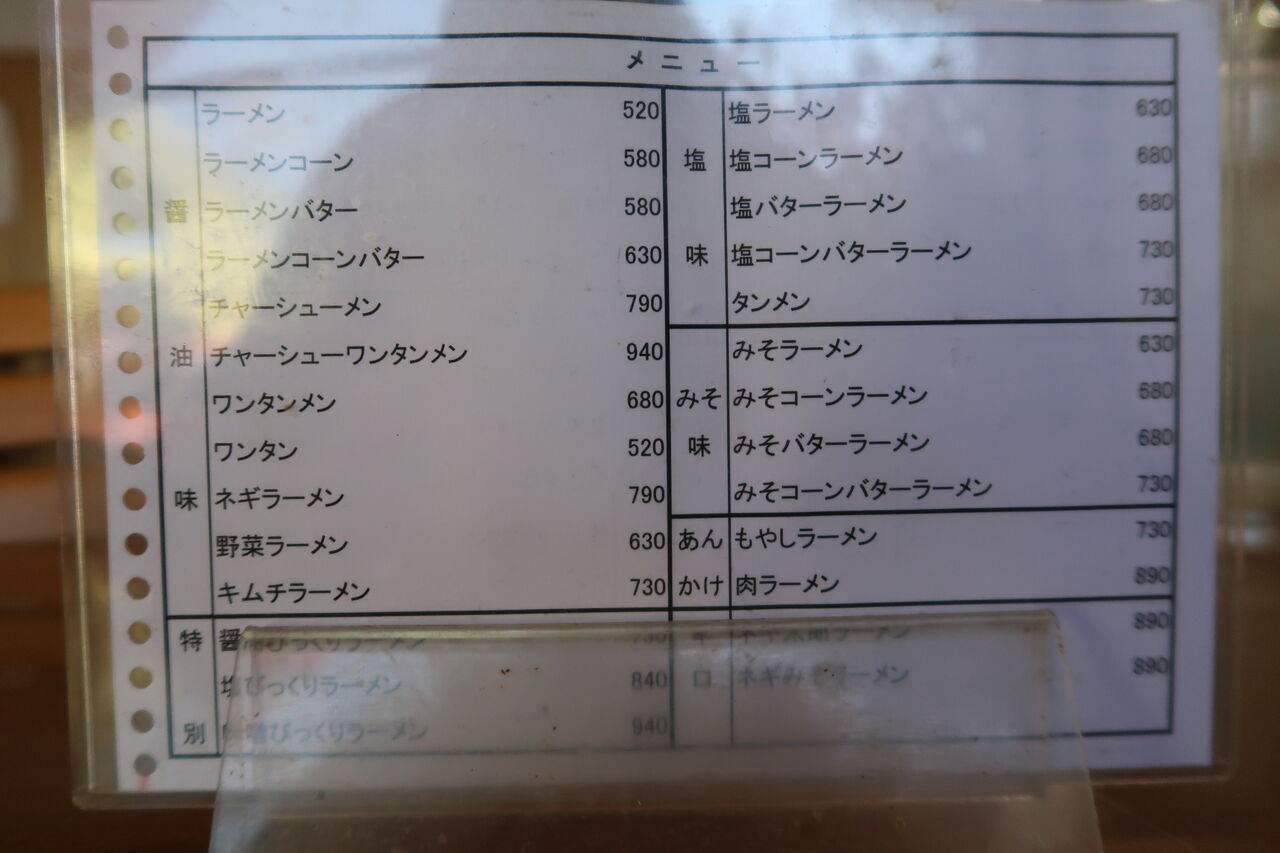 メニュー
醤油味
ラーメン 520
ラーメンコーン 580
ラーメンバター 580
ラーメンコーンバター 630
チャーシューメン 790
チャーシューワンタンメン 940
ワンタンメン 680
ワンタン 520
ネギラーメン 790
野菜ラーメン 630
キムチラーメン 730
特別
醤油びっくりラーメン 730
塩びっくりラーメン 840
びっくりラーメン 940
塩味
塩ラーメン 630
塩コーンラーメン 680
塩バターラーメン 680
塩コーンバターラーメン 730
タンメン 730
みそ味
みそラーメン 630
みそコーンラーメン 680
みそバターラーメン 680
みそコーンバターラーメン 730
あんかけ
もやしラーメン 730
肉ラーメン 890
口
ラーメン 890
ネギみそラーメン 890